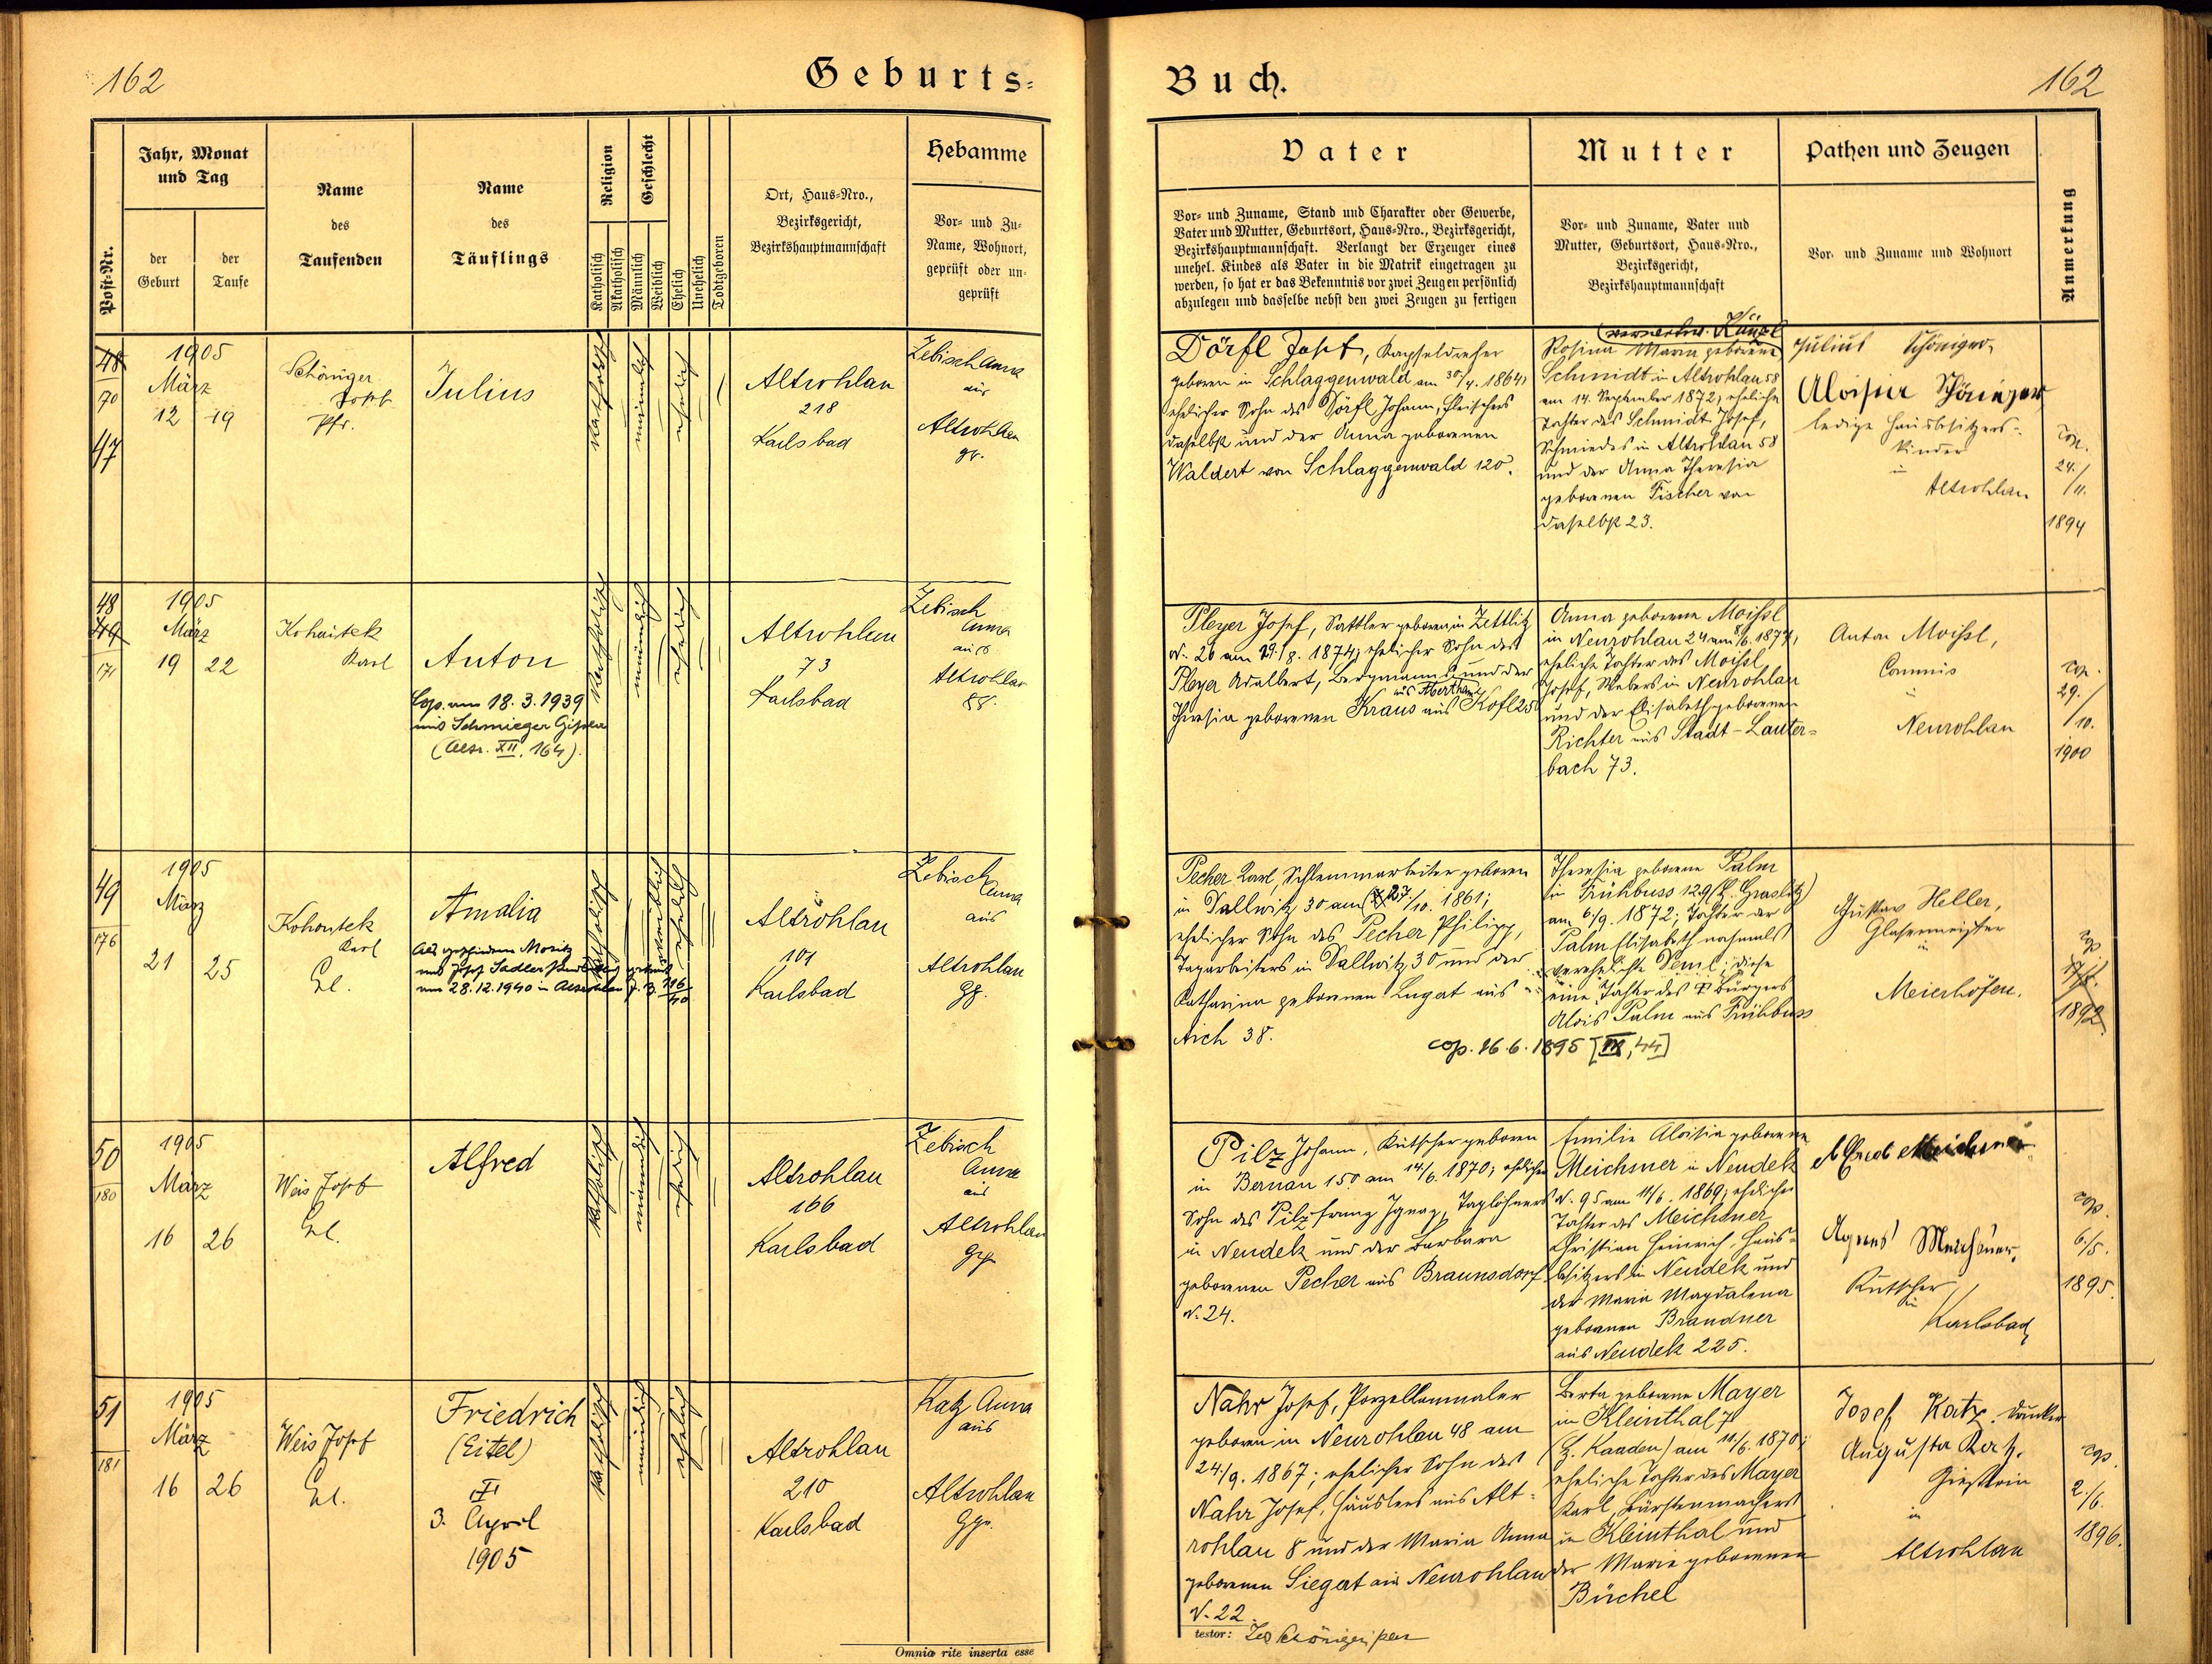 162
Geburts=
Jahr, Monat
und Tag
Post-Nr.
der
Geburt
der
Taufe
Name
des
Taufenden
Name
des
Täuflings
Religion
Katholisch
Akatholisch
Geschlecht
Männlich
Weiblich
Ehelich
Unehelich
Todtgeboren
Ort, Haus=Nro.,
Bezirksgericht,
Bezirkshauptmannschaft
Hebamme
Vor= und Zu=
Name, Wohnort,
geprüft oder un=
geprüft
48
70
47
1905
März
12 19
Schöniger
Josef
Pfr.
Julius
katholisch
männlich
ehelich
Altrohlau
218
Karlsbad
Zebisch Anna
aus
Altrohlau
gr.
48
49
171
1905
März
19 22
Kohautek
Karl
Anton
Cop. am 18. 3. 1939
mit Schmieger Gisela
(Altr. XII, 164).
katholisch
männlich
ehelich
Altrohlau
73
Karlsbad
Zebisch
Anna
aus
Altrohlau
88.
49
176
1905
März
21 25
Kohoutek
Karl
Cl.
Amalia
Als geschiedene Moritz
mit Josef Sadler getraut
am 28.12.1940 in Altrohlau
katholisch
weiblich
ehelich
Altrohlau
101
Karlsbad
Zebisch
Anna
aus
Altrohlau
50
180
1905
März
16 26
Weis Josef
Cl.
Alfred
katholisch
männlich
ehelich
Altrohlau
166
Karlsbad
Zebisch
Anna
aus
Altrohlau
51
181
1905
März
16 26
Weis Josef
Cl.
Friedrich
(Eitel)
3. April
1905
katholisch
männlich
ehelich
Altrohlau
210
Karlsbad
Katz Anna
aus
Altrohlau
Omnia rite inserta esse
Buch.
162
Vater
Vor= und Zuname, Stand und Charakter oder Gewerbe,
Vater und Mutter, Geburtsort, Haus=Nro., Bezirksgericht,
Bezirkshauptmannschaft. Verlangt der Erzeuger eines
unehel. Kindes als Vater in die Matrik eingetragen zu
werden, so hat er das Bekenntnis vor zwei Zeugen persönlich
abzulegen und dasselbe nebst den zwei Zeugen zu fertigen
Mutter
Vor= und Zuname, Vater und
Mutter, Geburtsort, Haus=Nro.,
Bezirksgericht,
Bezirkshauptmannschaft
Pathen und Zeugen
Vor= und Zuname und Wohnort
Anmerkung
Dörfl Josef, Kapseldreher
geboren in Schlaggenwald am 30/4. 1864;
ehelicher Sohn des Dörfl Johann, Fleischers
daselbst und der Anna geborenen
Waldert von Schlaggenwald 120.
Rosina Maria geborene
Schmidt in Altrohlau 58
am 14. September 1872, eheliche
Tochter des Schmidt Josef,
Schmiedes in Altrohlau 58
und der Anna Theresia
geborenen Fischer von
daselbst 23.
Julius Schöniger,
Aloisia Schöniger
ledige Hausbesitzers=
kinder
in
Altrohlau
cop.
24./
11.
1894
Pleyer Josef, Sattler geboren in Zettlitz
N. 26 am 29./8. 1874; ehelicher Sohn des
Pleyer Adalbert, Bergmanns und der
aus Abertham
Theresia geborenen Kraus aus Kofl 25
Anna geborene Moissl
in Neurohlau 24 am 8/6. 1877,
eheliche Tochter des Moissl
Josef, Webers in Neurohlau
und der Elisabeth geborenen
Richter aus Stadt-Lauter=
bach 73.
Anton Moissl,
Commis
in
Neurohlau
cop.
29./
10.
1900
Pecher Karl, Schlemmarbeiter geboren
in Dallwitz 30 am 27./10. 1861;
ehelicher Sohn des Pecher Philipp,
Tagarbeiters in Dallwitz 30 und der
Katharina geborenen Lugat aus
Aich 38.
cop. 16. 6. 1895 [III, 44]
Theresia geborene Palm
in Frühbuss 129 (b. Graslitz)
am 6/9. 1872; Tochter der
Palm Elisabeth nachmals
verehelichte ; diese
eine Tochter des Bürgers
Alois Palm aus Frühbuss
Gustav Heller,
Glasermeister
in
Meierhöfen.
cop.
1892
Pilz Johann, Kutscher geboren
in Bernau 150 am 14/6. 1870; ehelicher
Sohn des Pilz Franz Ignaz, Taglöhners
in Neudek und der Barbara
geborenen Pecher aus Braunsdorf
N. 24.
Emilie Aloisia geborene
Meichsner in Neudek
N. 95 am 14/6. 1869; eheliche
Tochter des Meichsner
Christian Heinrich, Haus=
besitzers in Neudek und
der Maria Magdalena
geborenen Brandner
aus Neudek 225.
Alfred Meichsner
Agnes Meichsner,
Kutscher
in
Karlsbad
cop.
6./5.
1895.
Nahr Josef, Porzellanmaler
geboren in Neurohlau 48 am
24./9. 1867; ehelicher Sohn des
Nahr Josef, Häuslers aus Alt=
rohlau 8 und der Maria Anna
geborenen Siegert aus Neurohlau
N. 22.
Berta geborene Mayer
in Kleinthal 7
(b. Kaaden) am 11./6. 1870;
eheliche Tochter des Mayer
Karl, Bürstenmachers
in Kleinthal und
der Marie geborenen
Büchel
Josef Katz, Drucker
Augusta Katz,
in
Altrohlau
cop.
2./6.
1896.
testor: Jos Schöniger